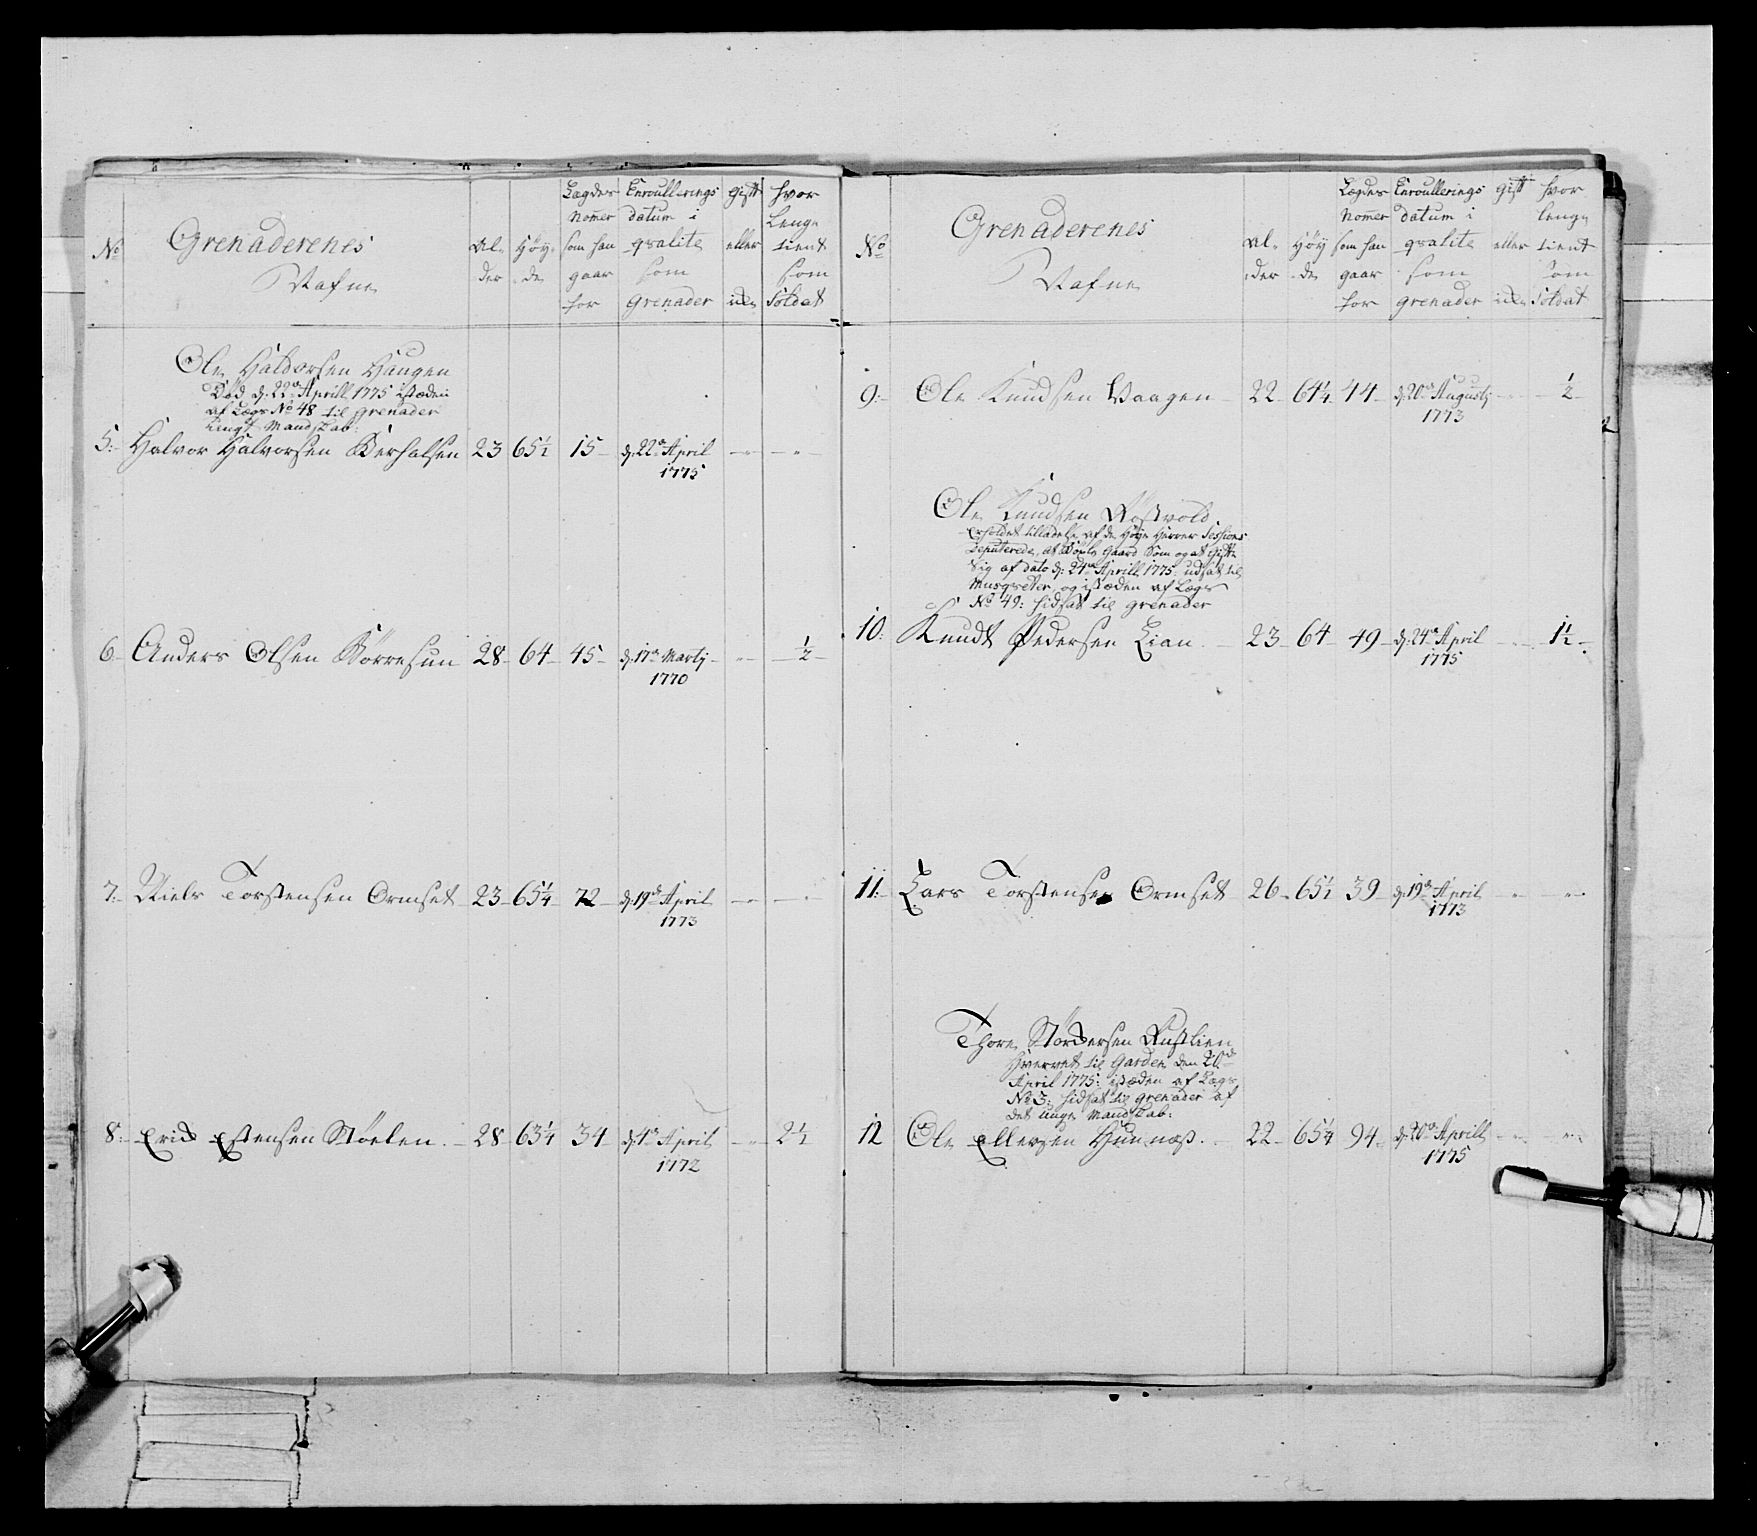 No
Grenaderenes
Nafne
Al-
der
Høy-
de
Lægdes
Nomer
som han
gaar
for
Enroullerings
datum i
qvalite
som
Grenader
Gift
eller
hvor
Lenge
tient
som
Soldat
Ole Haldorsen Haugen
Død d: 22de Aprill 1775 istæden
af Lægs No 48 til grenader
Mandskab:
5: Halvor Halvorsen 23 65½ 15 d: 22de April
1775
6 Anders Olsen 28 64 45 d: 17de Martj ½
1770
7: Niels Torstensen Ormset 23 65¼ 72 d: 19de April
1773
8: Erich Estensen Støelen 28 63¼ 34 d: 1de April 2½
1772
No
Grenaderenes
Nafne
Al-
der
Høy
de
Lægdes
Nomer
som han
gaar
for
Enroullerings
datum i
qvalite
som
grenader
Gift
eller
hvor
lenge
tient
som
Soldat
9: Ole Knudsen Vaagen 22 64¼ 44 d: 20de Augustj ½
1773
Ole Knudsen
Erholdet tilladelse af de Høye Herrer Sessions
Deputerede, at Gaard Som og at gifte
Sig af dato d: 24de Aprill 1775 udsat til
Musqveter, og istæden af Lægs
No 49: Hidsat til grenader
10: Knudt Pedersen Lian 23 64 49 d: 24de April 1½
1775
11: Lars Torstensen Ormset 26 65½ 39 d: 19de April
1773
Thore
Hvervet til Garden den 20de
April 1775: istæden af Lægs
No 3: Hidsat til grenader af
det unge Mandskab:
12 Ole Ellersen Hunnæs 22 65¼ 94 d: 20de Aprill
1775